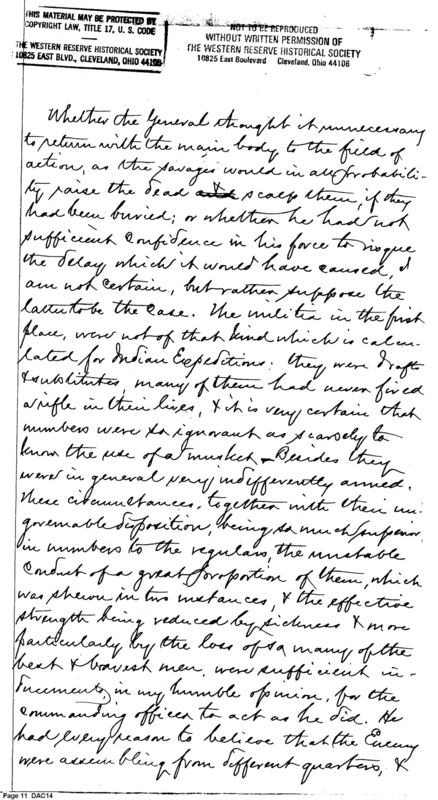 THIS MATERIAL MAY BE PROTECTED BY
COPYRIGHT LAW, TITLE 17, U. S. CODE
THE WESTERN RESERVE HISTORICAL SOCIETY
10825 EAST BLVD., CLEVELAND, OHIO 44106
NOT TO BE REPRODUCED
WITHOUT WRITTEN PERMISSION OF
THE WESTERN RESERVE HISTORICAL SOCIETY
10825 East Boulevard Cleveland, Ohio 44106
Whether the General thought it unnecessary
to return with the main body to the field of
action, as the savages would in all probabili-
ty raise the dead & scalp them, if they
had been buried; or whether he had not
sufficient confidence in his force to risque
the delay which it would have caused, I
am not certain, but rather suppose the
latter to be the case. The militia in the first
place, were not of that kind which is calcu-
lated for Indian Expeditions: they were drafts
& substitutes, many of them had never fired
a rifle in their lives, & it is very certain that
numbers were so ignorant as scarsely to
know the use of a musket. Besides they
were in general very indifferently armed.
These circumstances, together with their un-
governable disposition, being so much superior
in numbers to the regulars, the unstable
conduct of a great proportion of them, which
was shewn in two instances, & the effective
strength being reduced by sickness & more
particularly by the loss of so many of the
best & bravest men, were sufficient in-
ducements, in my humble opinion, for the
commanding officer to act as he did. He
had every reason to believe that the Enemy
were assembling from different quarters, &
Page 11 DAC14